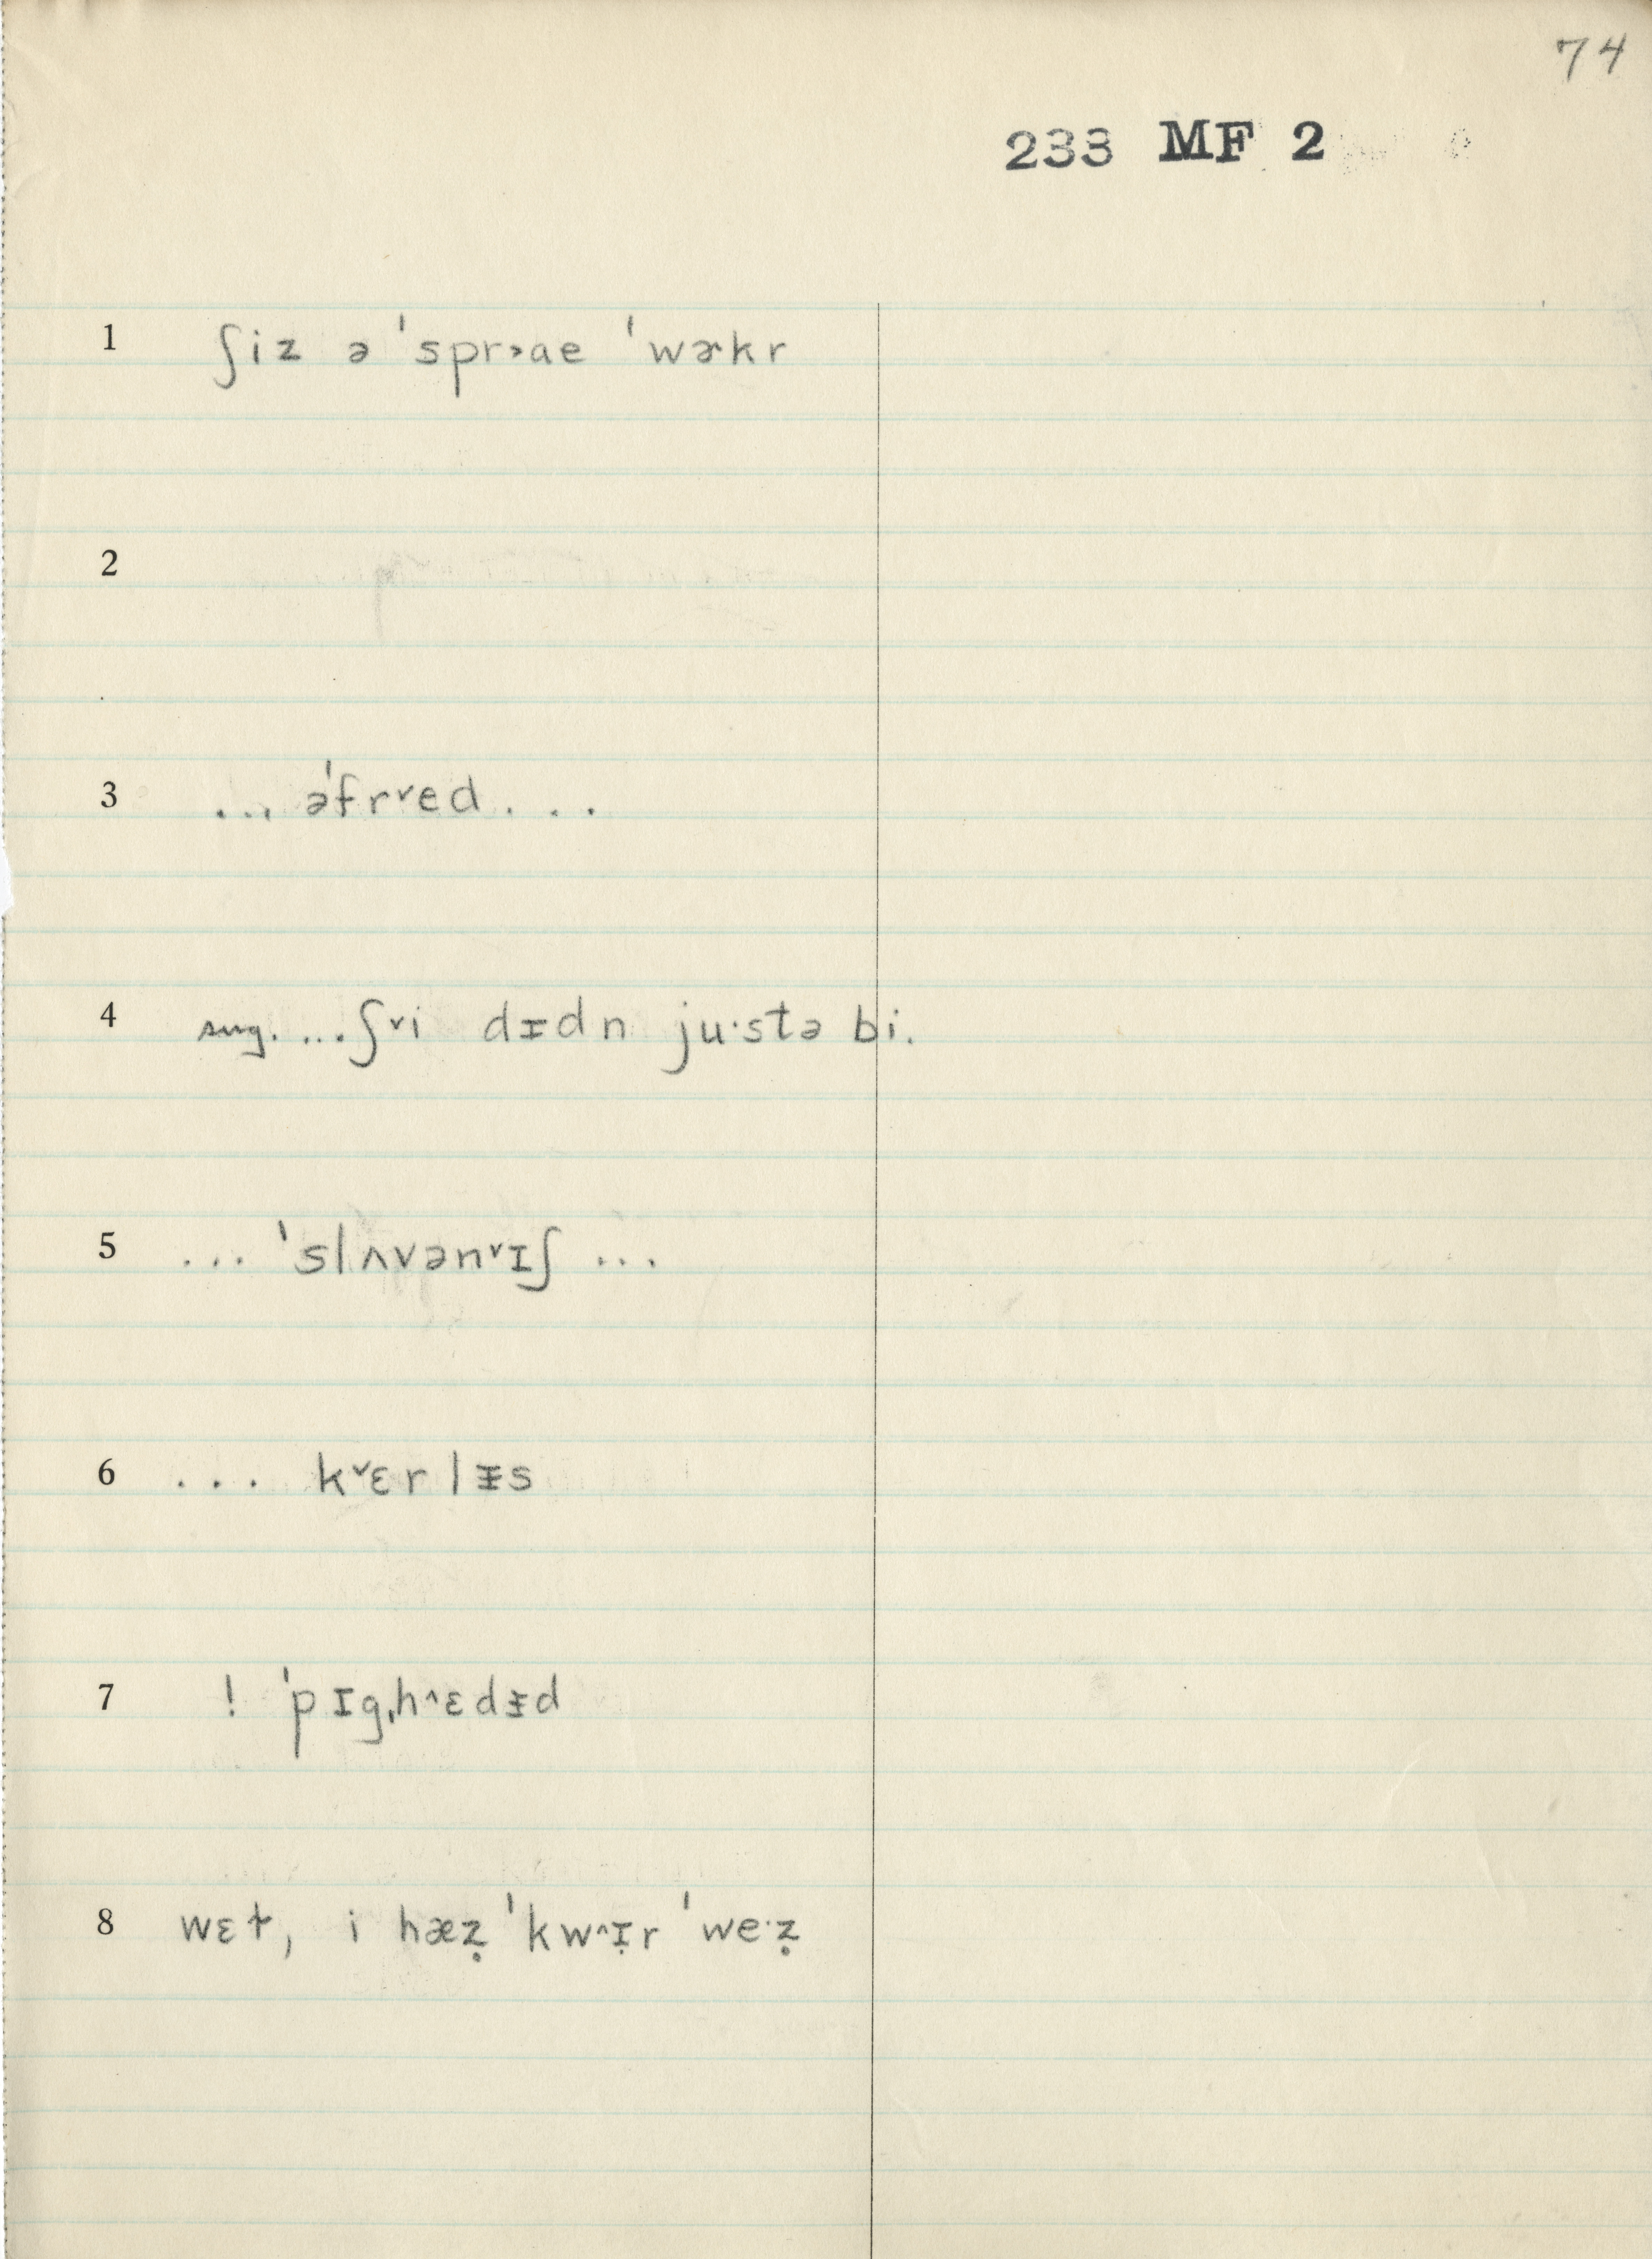 74
233 MF 2
1 ʃiz ə ˈspr˃ae ˈwɚkr
2
3 ... əˈfr˅ed ...
4 sug. ...ʃ˅i dɪdn ju·stə bi.
5 ... ˈslʌvən˅ɪʃ ...
6 ... k˅ɛrlɪ̵s
7 ! ˈpɪgˌh^ɛdɪ̵d
8 wɛɫ, i hæz̥ ˈkw^ɪ̣r ˈwe·z̥